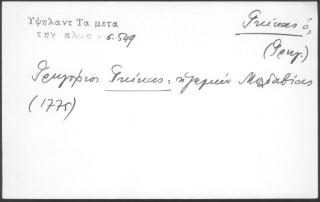 Υψηλαντ Τα μετα
την αλωσιν 6.549
Γκίκας ὁ,
(Γρηγ.)
Γρηγόριος Γκίκας, ἡγεμών Μολδαβίας
(1775)